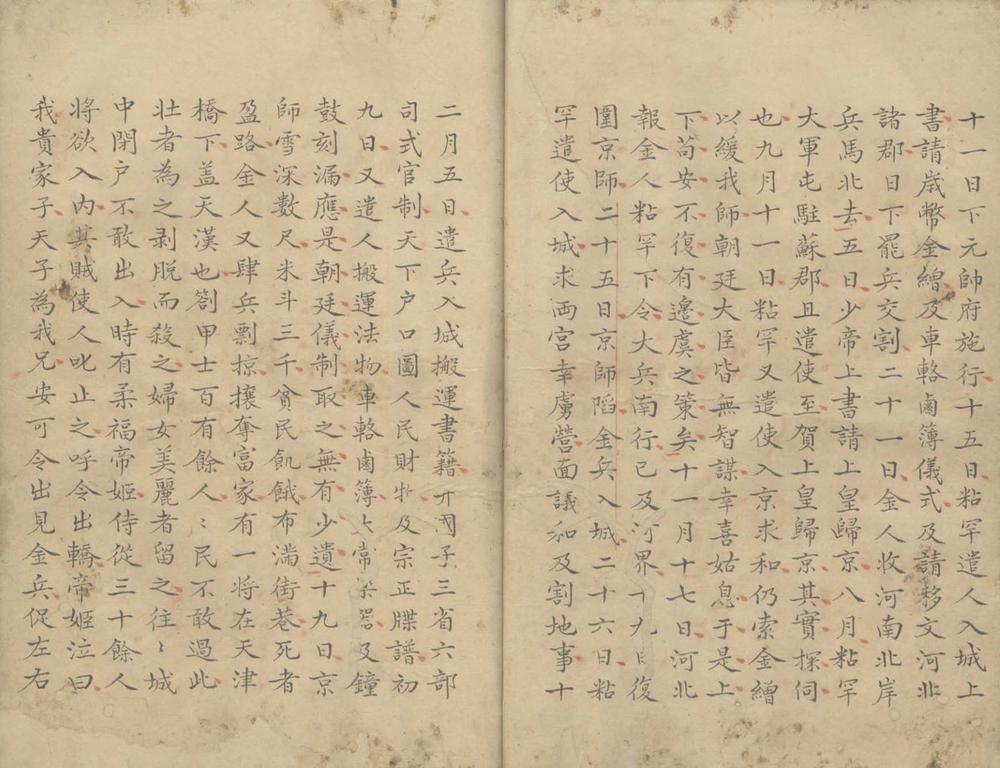 十一日下元帥府施行十五日粘罕遣人入城上
書請歲幣金繒及車輅鹵簿儀式及請移文河北
諸郡日下罷兵交割二十一日金人收河南北岸
兵馬北去五日少帝上書請上皇歸京八月粘罕
大軍屯駐蘇郡且遣使至賀上皇歸京其實探伺
也九月十一日粘罕又遣使入京求和仍索金繒
以緩我師朝廷大臣皆無智謀幸喜姑息于是上
下苟安不復有邊虞之策矣十一月十七日河北
報金人粘罕下令大兵南行已及河界十九日復
圍京師二十五日京師陷金兵入城二十六日粘
罕遣使入城求両宮幸虜營面議和及割地事十
二月五日遣兵入城搬運書籍并国子三省六部
司式官制天下户口圖人民財物及宗正牒譜初
九日又遣人搬運法物車輅鹵簿太常樂器及鐘
鼓刻漏應是朝廷儀制取之無有少遺十九日京
師雪深數尺米斗三千貧民飢餓布滿街巷死者
盈路金人又肆兵剽掠攘奪富家有一将在天津
橋下盖天漢也劄甲士百有餘人〻民不敢過此
壮者為之剥脱而殺之婦女美麗者留之往〻城
中閉户不敢出入時有柔福帝姬侍從三十餘人
将欲入内其賊使人叱止之呼令出轎帝姬泣曰
我貴家子天子為我兄安可令出見金兵促左右